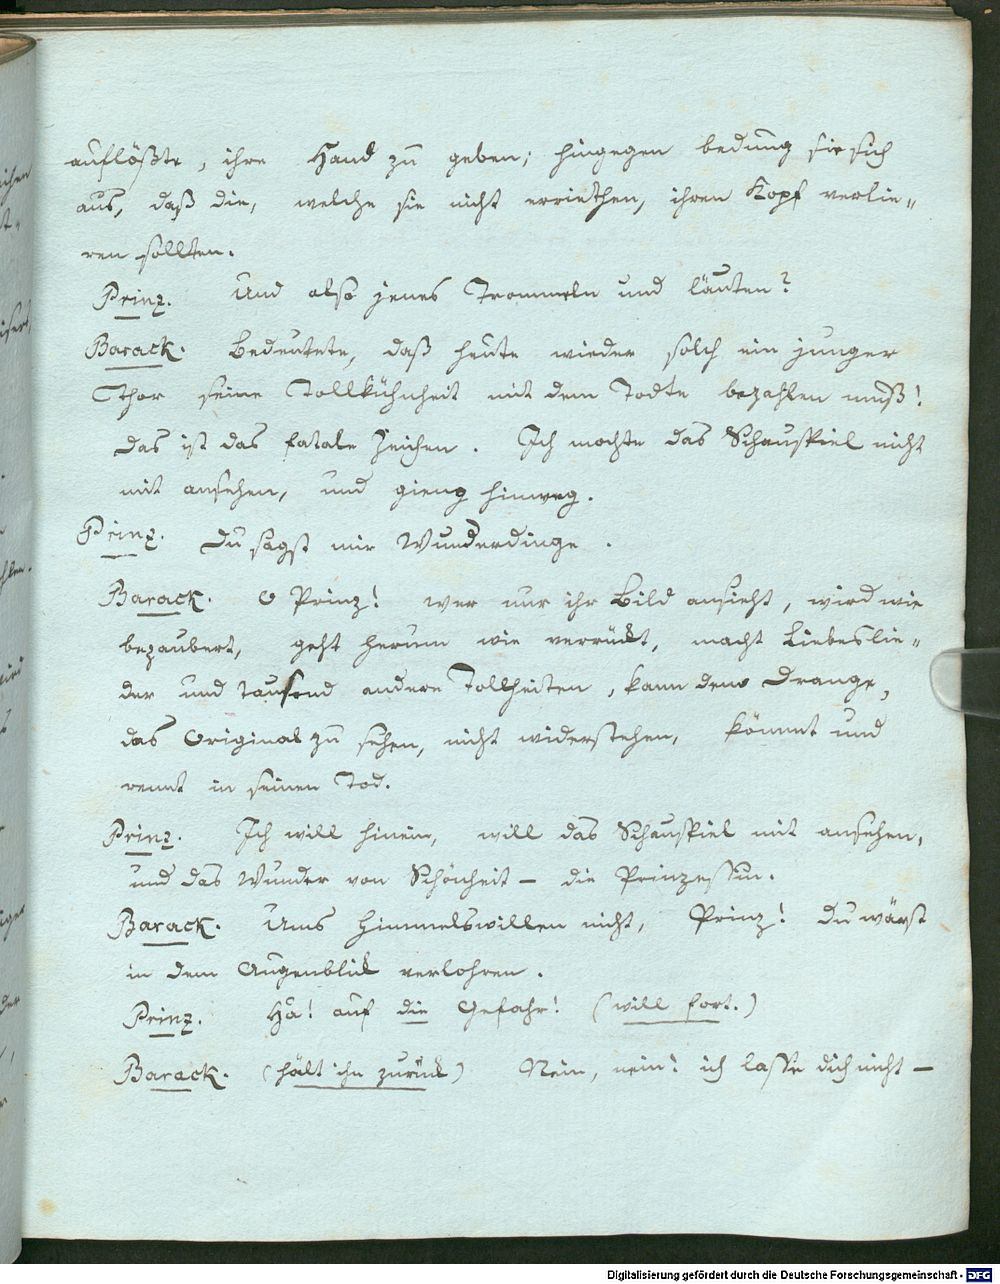 auflößte, ihre Hand zu geben; hingegen bedung sie sich
aus, daß die, welche sie nicht erriethen, ihren Kopf verlie„
ren sollten.
Prinz. Und also jenes Trommeln und läuten?
Barack. Bedeutete, daß heute wieder solch ein junger
Thor seine Tollkühnheit mit dem Todte bezahlen muß!
das ist das fatale Zeichen. Ich mochte das Schauspiel nicht
mit ansehen, und gieng hinweg.
Prinz. Du sagst mir Wunderdinge.
Barack. O Prinz! wer nur ihr Bild ansieht, wird wie
bezaubert, geht herum wie verrückt, macht Liebeslie„
der und tausend andere Tollheiten, kann dem Drange,
das Original zu sehen, nicht widerstehen, kömmt und
rennt in seinen Tod.
Prinz. Ich will hinein, will das Schauspiel mit ansehen,
und das Wunder von Schönheit – die Prinzessin.
Barack. Ums Himmelswillen nicht, Prinz! Du wärst
in dem Augenblick verlohren.
Prinz. Ha! auf die Gefahr! (will fort.)
Barack. (hält ihn zurück) Nein, nein! ich lasse dich nicht –
Digitalisierung gefördert durch die Deutsche Forschungsgemeinschaft - DFG